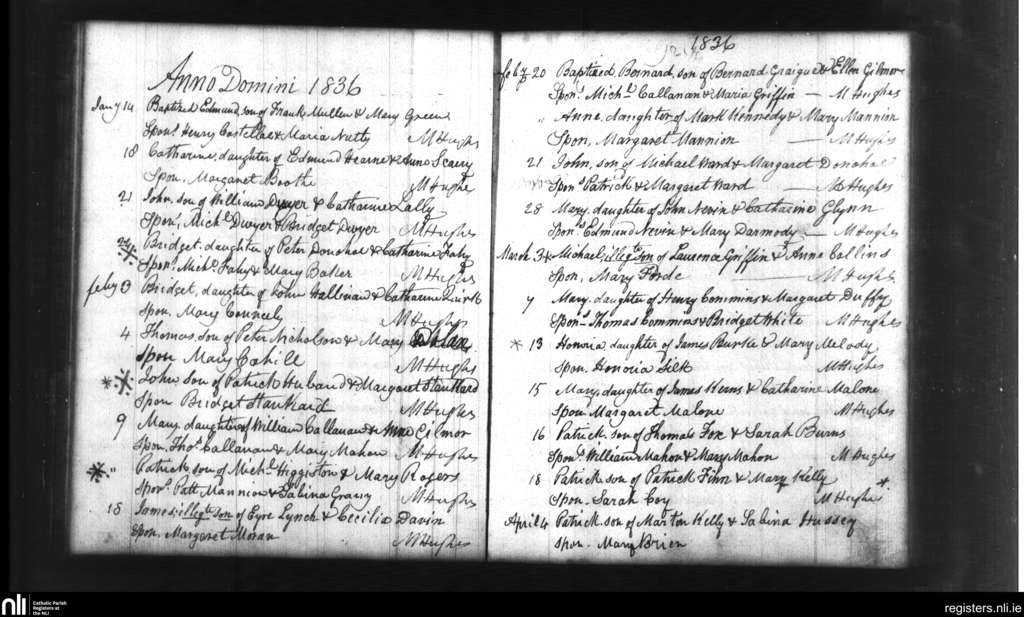 Anno Domini 1836
Jany 14 Baptized Edmund son of Frank Mullen & Mary Greene
Sponrs Henry Costelloe & Maria Nutty M Hughes
18 Catharine, daughter of Edmund Hearne & Anne Scarry
Spon. Margaret Boothe M Hughes
21 John, son of William Dwyer & Catharine Lally
Sponrs Michl Dwyer & Bridget Dwyer M Hughes
24 Bridget, daughter of Peter Donohoe & Catharine Fahy
Sponrs Michl Fahy & Mary Baker M Hughes
feby 3 Bridget, daughter of John Hallinan & Catharine
Spon. Mary Conneely M Hughes
4 Thomas, son of Peter Nicholson & Mary
Spon Mary Cahill M Hughes
John son of Patrick Huband & Margaret Stankard
Spon Bridget Stankard M Hughes
9 Mary, daughter of William Callanan & Anne Gilmor
Spon. Thos Callanan & Mary Mahon M Hughes
" Patrick, son of Michl Higgiston & Mary Rogers
Sponrs Patt Mannion & Sabina Grassy M Hughes
18 James illegte son of Eyre Lynch & Cecilia Davin
Spon. Margaret Moran M Hughes
1836
feby 20 Baptized, Bernard, son of Bernard Graigue & Ellen Gilmore
Sponrs Michl Callanan & Maria Griffin — M Hughes
" Anne, daughter of Mark Kennedy & Mary Mannion
Spon, Margaret Mannion — M Hughes
21 John, son of Michael Ward & Margaret Donohoe
Sponrs Patrick & Margaret Ward — M Hughes
28 Mary, daughter of John Nevin & Catharine Glynn
Sponrs Edmund Nevin & Mary Darmody — M Hughes
March 3 Michael, illegte son of Laurence Griffin & Anne Collins
Spon, Mary Forde — M Hughes
7 Mary, daughter of Henry Commins & Margaret Duffy
Sponrs Thomas Commins & Bridget White M Hughes
* 13 Honoria daughter of James Burke & Mary Melody
Spon. Honoria Silk M Hughes
15 Mary, daughter of James Herns & Catharine Malone
Spon Margaret Malone M Hughes
16 Patrick son of Thomas Fox & Sarah Burns
Sponrs William Mahon & Mary Mahon M Hughes
18 Patrick son of Patrick Finn & Mary Kelly *
Spon. Sarah Coy M Hughes
April 4 Patrick son of Martin Kelly & Sabina Hussey
Spon. Mary Brien
nli
Catholic Parish
Registers at
the NLI
registers.nli.ie